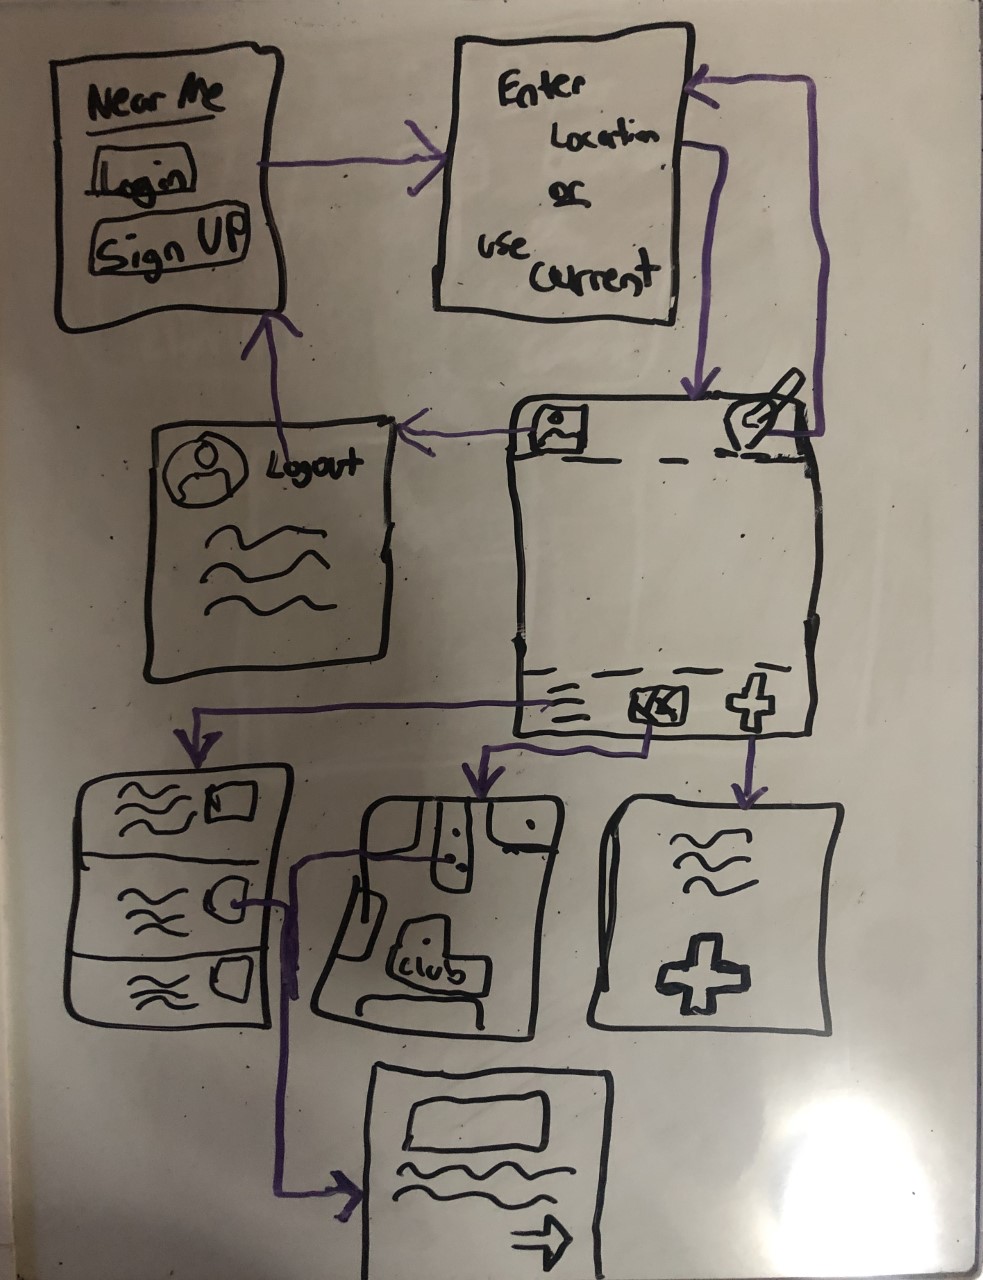 Near Me
Login
Sign UP
Enter
Location
or
use
current
Logout
club